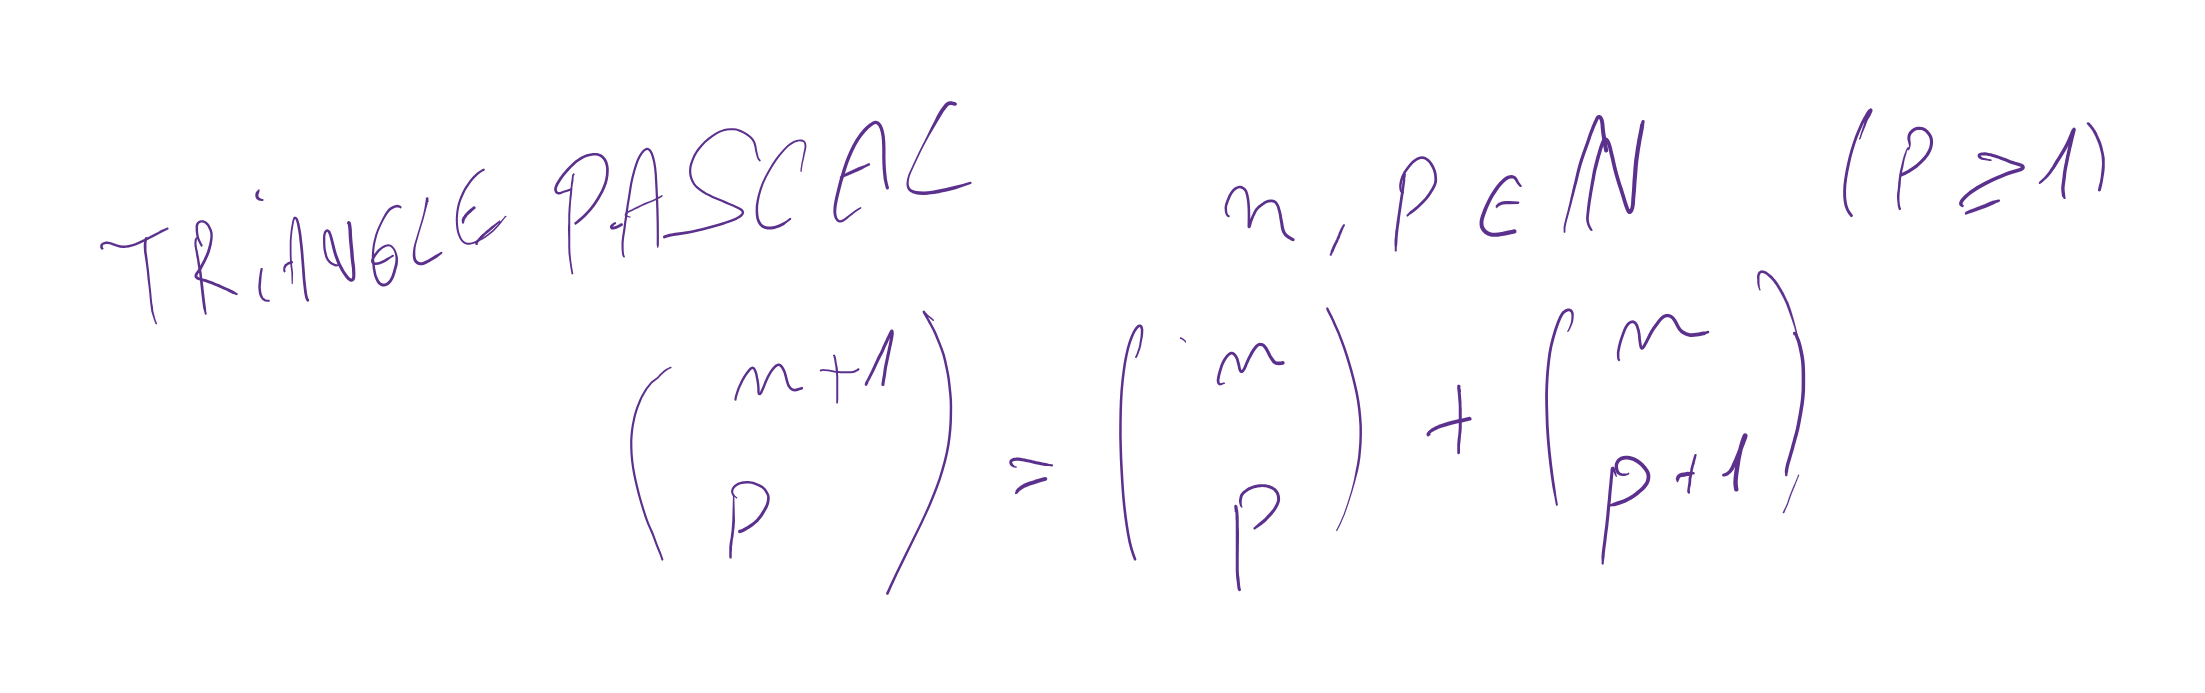 TRiANGLE PASCAL n, P ∈ ℕ (P ≥ 1)
(n+1 p) = (n p) + (n p+1)